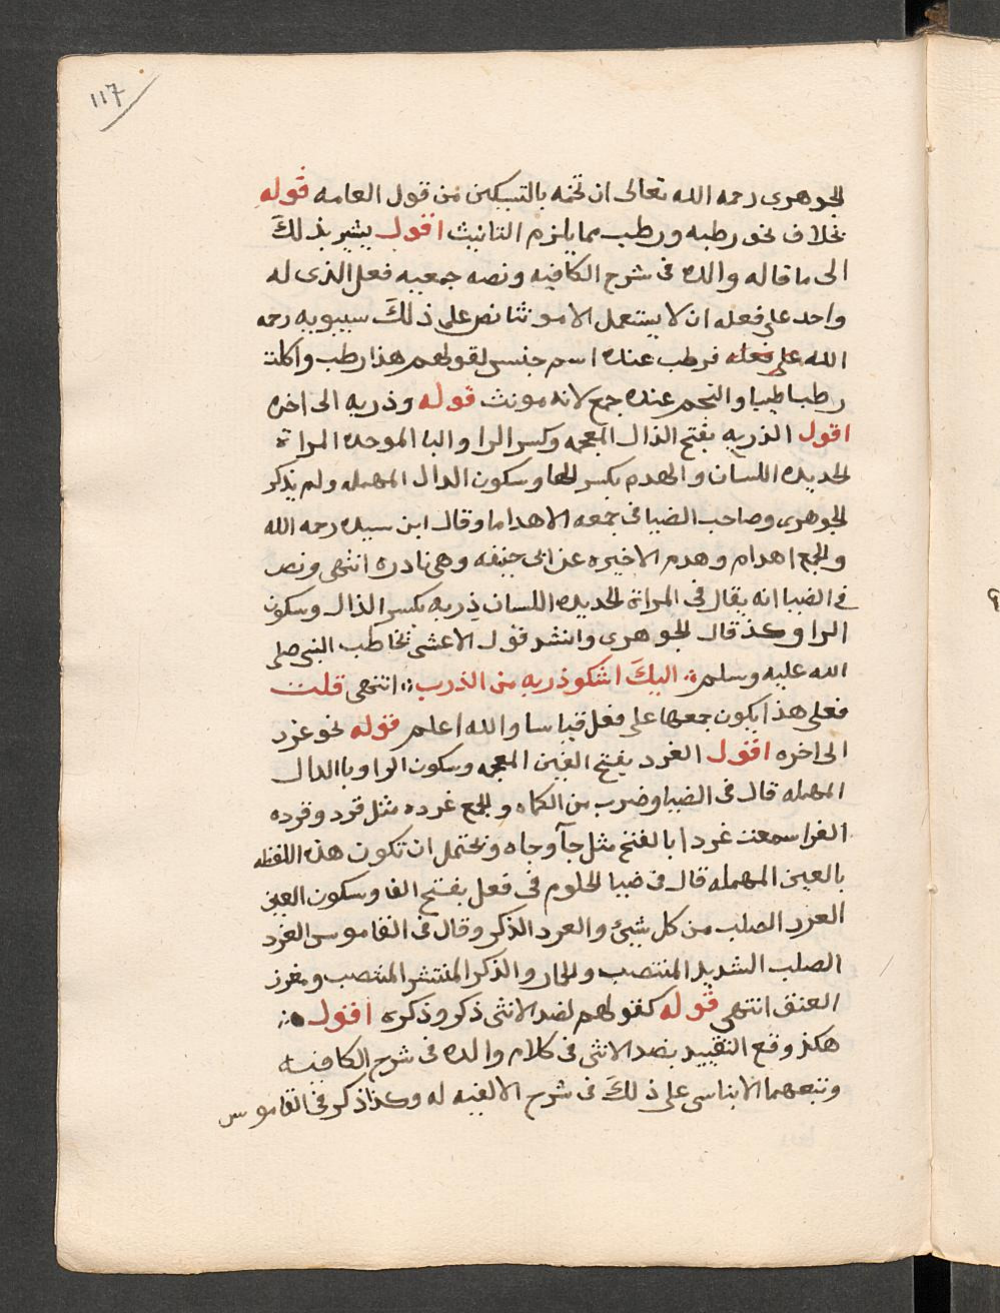 ١١٧
الجوهرى رحمه الله تعالى ان تخمه بالتسكين من قول العامه قوله
بخلاف نحو رطبه ورطب مما يلزم التانيث اقول يشير بذلك
الى ما قاله والده فى شرح الكافيه ونصه جمعيه فعل الذى له
واحد على فعله ان لا يستعمل الا مونثا نص على ذلك سيبويه رحمه
الله على فعله فرطب عنده اسم جنس لقولهم هذا رطب واكلت
رطبا طيبا والتخم عنده جمع لانه مونث قوله وذربه الى اخره
اقول الذربه بفتح الذال المعجمه وكسر الرا والبا الموحده المراة
الحديده اللسان والهدم بكسر الها وسكون الدال المهمله ولم يذكر
الجوهرى وصاحب الضيا فى جمعه الا هداما وقال ابن سيده رحمه الله
والجمع اهدام وهدم الاخيره عن ابى حنيفه وهى نادره انتهى ونص
فى الضيا انه يقال فى المراة الحديده اللسان ذربه بكسر الذال وسكون
الرا وكذ قال الجوهرى وانشد قول الاعشى يخاطب النبى صلى
الله عليه وسلم اليك اشكو ذربه من الذرب انتهى قلت
فعلى هذا يكون جمعها على فعل قياسا والله اعلم قوله نحو غرد
الى اخره اقول الغرد بفتح الغين المعجمه وسكون الرا وبالدال
المهمله قال فى الضيا وضرب من الكماه والجمع غرده مثل قرد وقرده
الفرا سمعت غردا بالفتح مثل جآ وجاه ويحتمل ان تكون هذه اللفظه
بالعين المهمله قال فى ضيا الحلوم فى فعل بفتح الفا وسكون العين
العرد الصلب من كل شيئ والعرد الذكر وقال فى القاموس العرد
الصلب الشديد المنتصب والحمار والذكر المنتشر المنتصب ومغرز
العنق انتهى قوله كقولهم لضد الانثى ذكر وذكره اقول
هكذ وقع التقييد بضد الانثى فى كلام والده فى شرح الكافيه
وتبعهما الابناسى على ذلك فى شرح الالفيه له وكذا ذكر فى القاموس